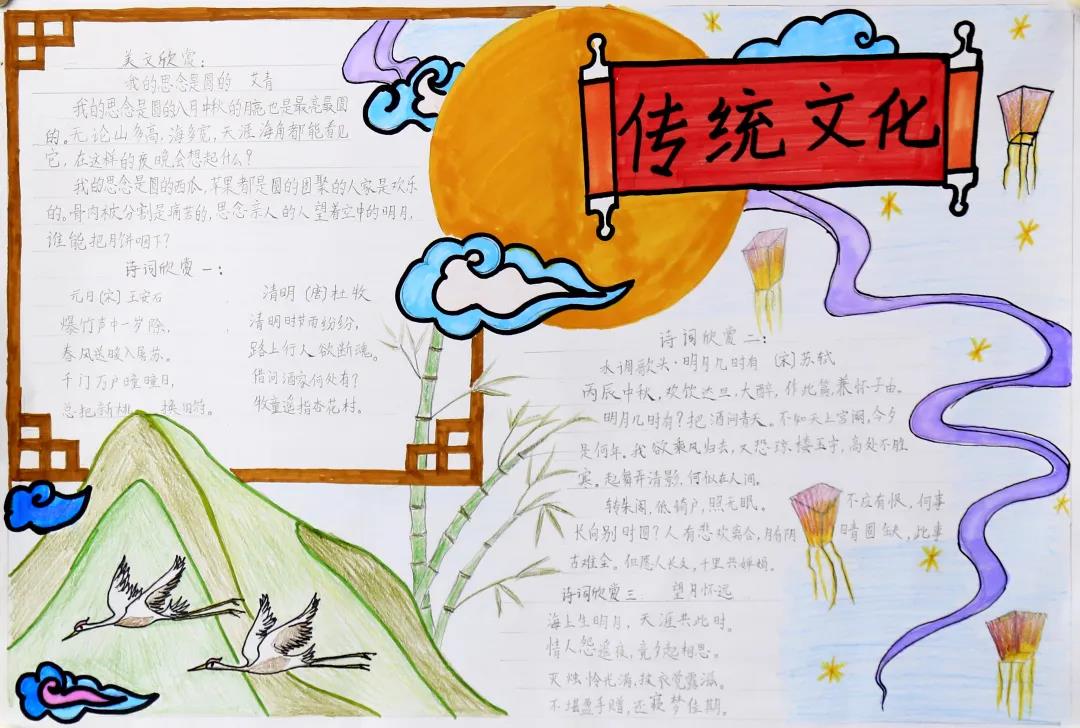 传统文化
美文欣赏：
我的思念是圆的 艾青
我的思念是圆的八月中秋的月亮也是最亮最圆
的。无论山多高，海多宽，天涯海角都能看见
它，在这样的夜晚会想起什么？
我的思念是圆的西瓜，苹果都是圆的团聚的人家是欢乐
的。骨肉被分割是痛苦的，思念亲人的人望着空中的明月，
谁能把月饼咽下？
诗词欣赏一：
元日(宋)王安石
爆竹声中一岁除，
春风送暖入屠苏。
千门万户曈曈日，
总把新桃 换旧符。
清明(唐)杜牧
清明时节雨纷纷，
路上行人欲断魂。
借问酒家何处有？
牧童遥指杏花村。
诗词欣赏二：
水调歌头·明月几时有 (宋)苏轼
丙辰中秋，欢饮达旦，大醉，作此篇，兼怀子由。
明月几时有？把酒问青天。不知天上宫阙，今夕
是何年。我欲乘风归去，又恐琼楼玉宇，高处不胜
寒。起舞弄清影，何似在人间。
转朱阁，低绮户，照无眠。 不应有恨，何事
长向别时圆？人有悲欢离合，月有阴 晴圆缺，此事
古难全。但愿人长久，千里共婵娟。
诗词欣赏三 望月怀远
海上生明月，天涯共此时。
情人怨遥夜，竟夕起相思。
灭烛怜光满，披衣觉露滋。
不堪盈手赠，还寝梦佳期。